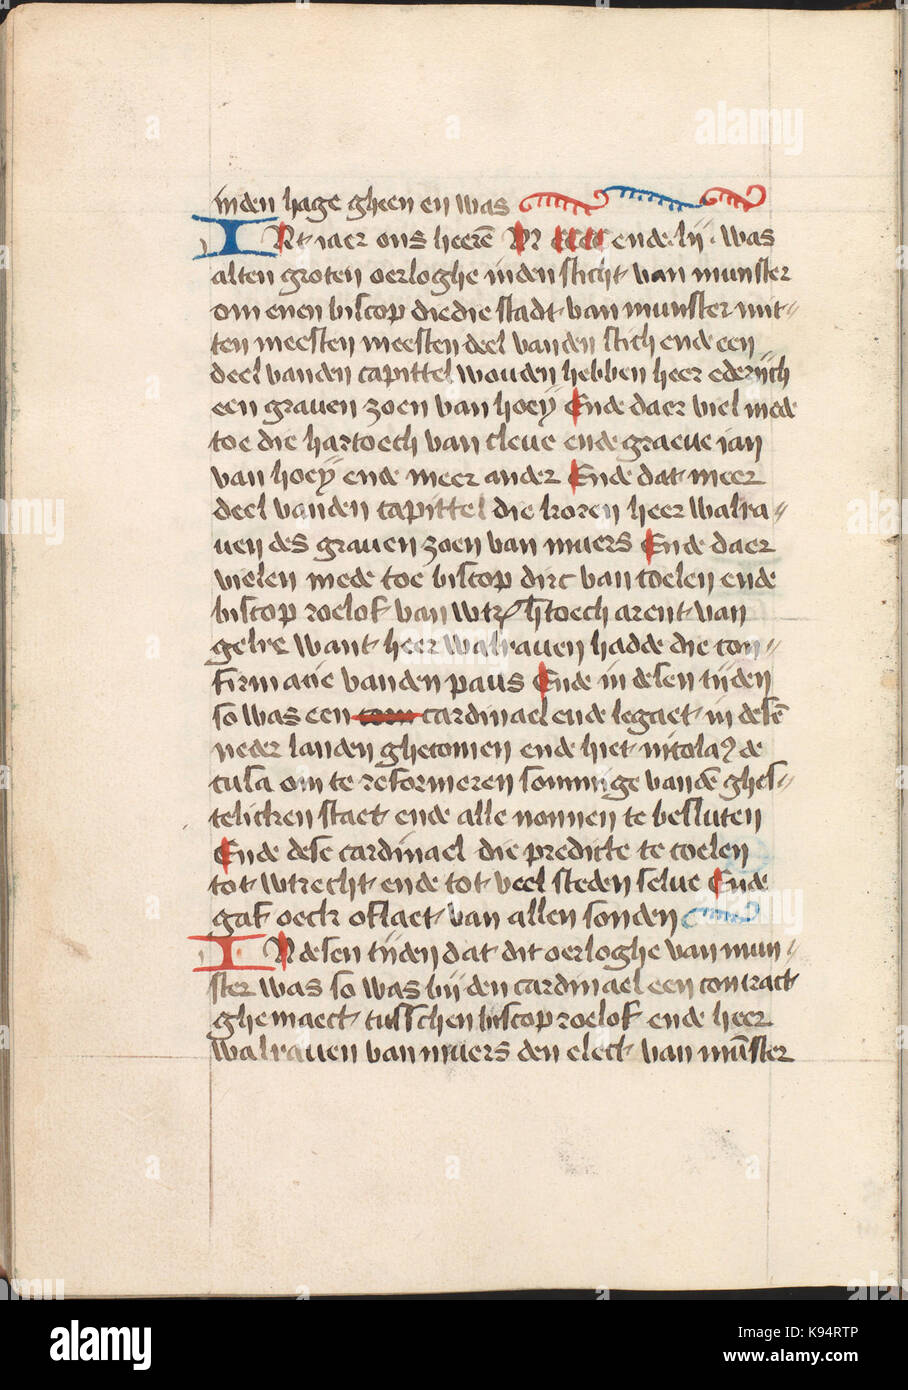 inden hage gheen en was
INt iaer ons heerē M cccc ende lij was
alten groten oerloghe inden sticht van munster
om enen biscop die die stadt van munster mit
ten meesten meesten deel vanden stich ende een
deel vanden capittel wouden hebben heer ederijch
een grauen zoen van hoeÿ Ende daer viel mede
toe die hartoech van cleue ende graeue ian
van hoeÿ ende meer ander Ende dat meer
deel vanden capittel die koren heer walra
uen des grauen zoen van muers Ende daer
vielen mede toe biscop dirc van coelen ende
biscop roelof van wtr htoech arent van
gelre want heer walrauen hadde die con
firmacie vanden paus Ende in desen tijden
so was een cardinael ende legaet in desē
neder landen ghecomen ende hiet nicolaꝯ de
cusa om te reformeren sommige vandē ghes
telicken staet ende alle nonnen te besluten
Ende dese cardinael die predicte te coelen
tot wtrecht ende tot veel steden selue Ende
gaf oeck oflaet van allen sonden
IN desen tijden dat dit oerloghe van mun
ster was so was bij den cardinael een contract
ghemaect tusschen biscop roelof ende heer
walrauen van muers den elect van mūster
alamy
K94RTP
www.alamy.com